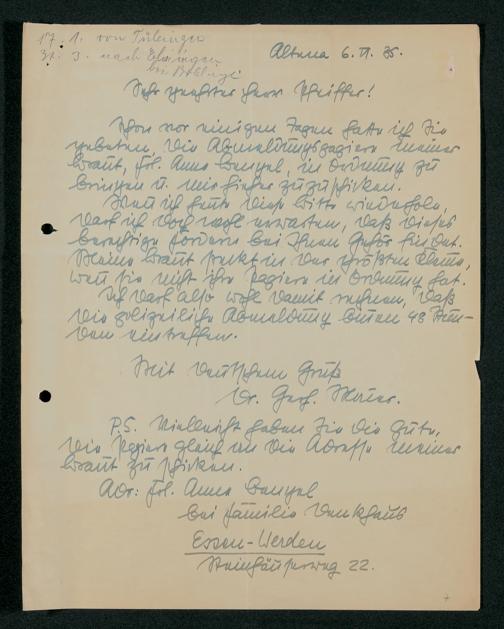 17. 1. von Tübingen
31. 3. nach Ehningen
bei Böblingen
Altena 6. IV. 35.
Sehr geehrter Herr Pfeiffer!
Schon vor einigen Tagen hatte ich Sie
gebeten, die Abmeldungspapiere meiner
Braut, Frl. Anna Bengel, in Ordnung zu
bringen u. mir hieher zuzuschicken.
Wenn ich heute diese Bitte wiederhole,
darf ich doch wohl erwarten, daß dieses
berechtigte Fordern bei Ihnen Gehör findet.
Meine Braut steckt in der größten Klemme,
weil sie nicht ihre Papiere in Ordnung hat.
Ich darf also wohl damit rechnen, daß
die polizeiliche Abmeldung binnen 48 Stun-
den eintreffen.
Mit deutschem Gruß
Dr. Gerh.
P.S. Vielleicht haben Sie die Güte,
die Papiere gleich an die Adresse meiner
Braut zu schicken.
Adr: Frl. Anna Bengel
bei Familie Denkhaus
Essen-Werden
22.